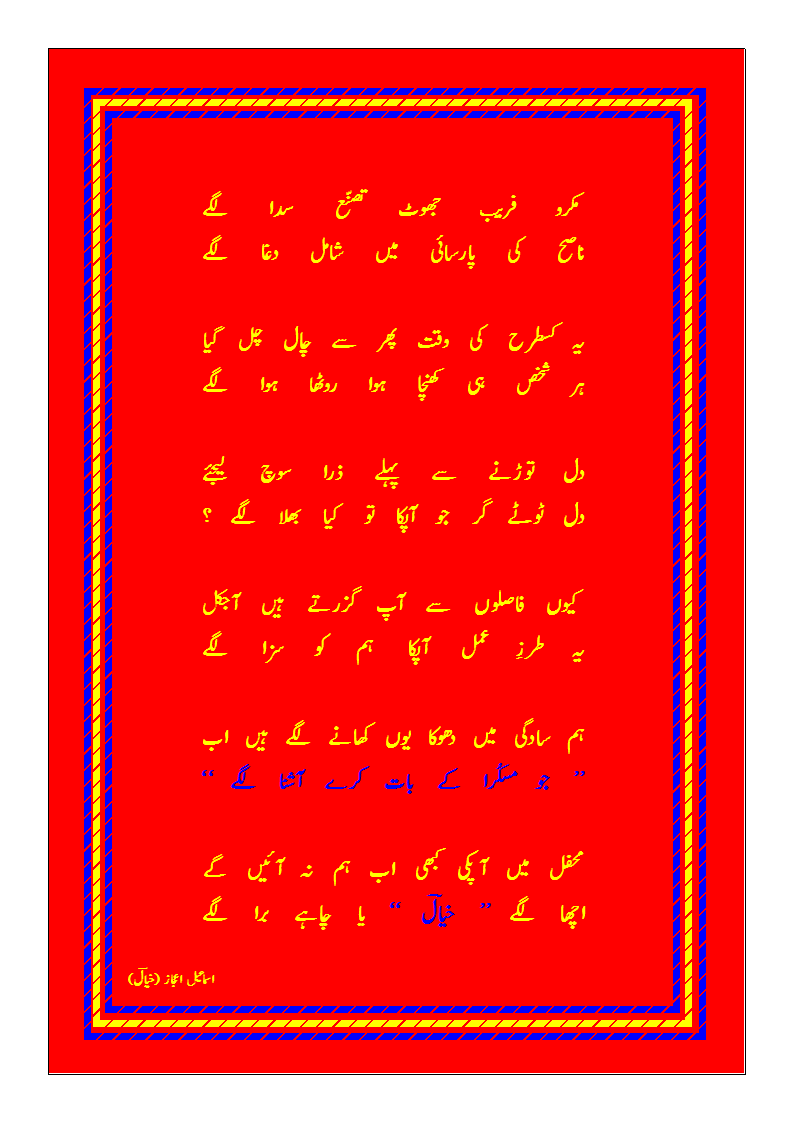 مکرو فریب جھوٹ تصنّع سدا لگے
ناصح کی پارسائی میں شامل دغا لگے
یہ کسطرح کی وقت پھر سے چال چل گیا
ہر شخص ہی کھنچا ہوا روٹھا ہوا لگے
دل توڑنے سے پہلے ذرا سوچ لیجئے
دل ٹوٹے گر جو آپکا تو کیا بھلا لگے ؟
کیوں فاصلوں سے آپ گزرتے ہیں آجکل
یہ طرزِ عمل آپکا ہم کو سزا لگے
ہم سادگی میں دھوکا یوں کھانے لگے ہیں اب
” جو مسکُرا کے بات کرے آشنا لگے “
محفل میں آپکی کبھی اب ہم نہ آئیں گے
اچھا لگے ” خیالؔ “ یا چاہے برا لگے
اسماعیل اعجاز (خیالؔ)